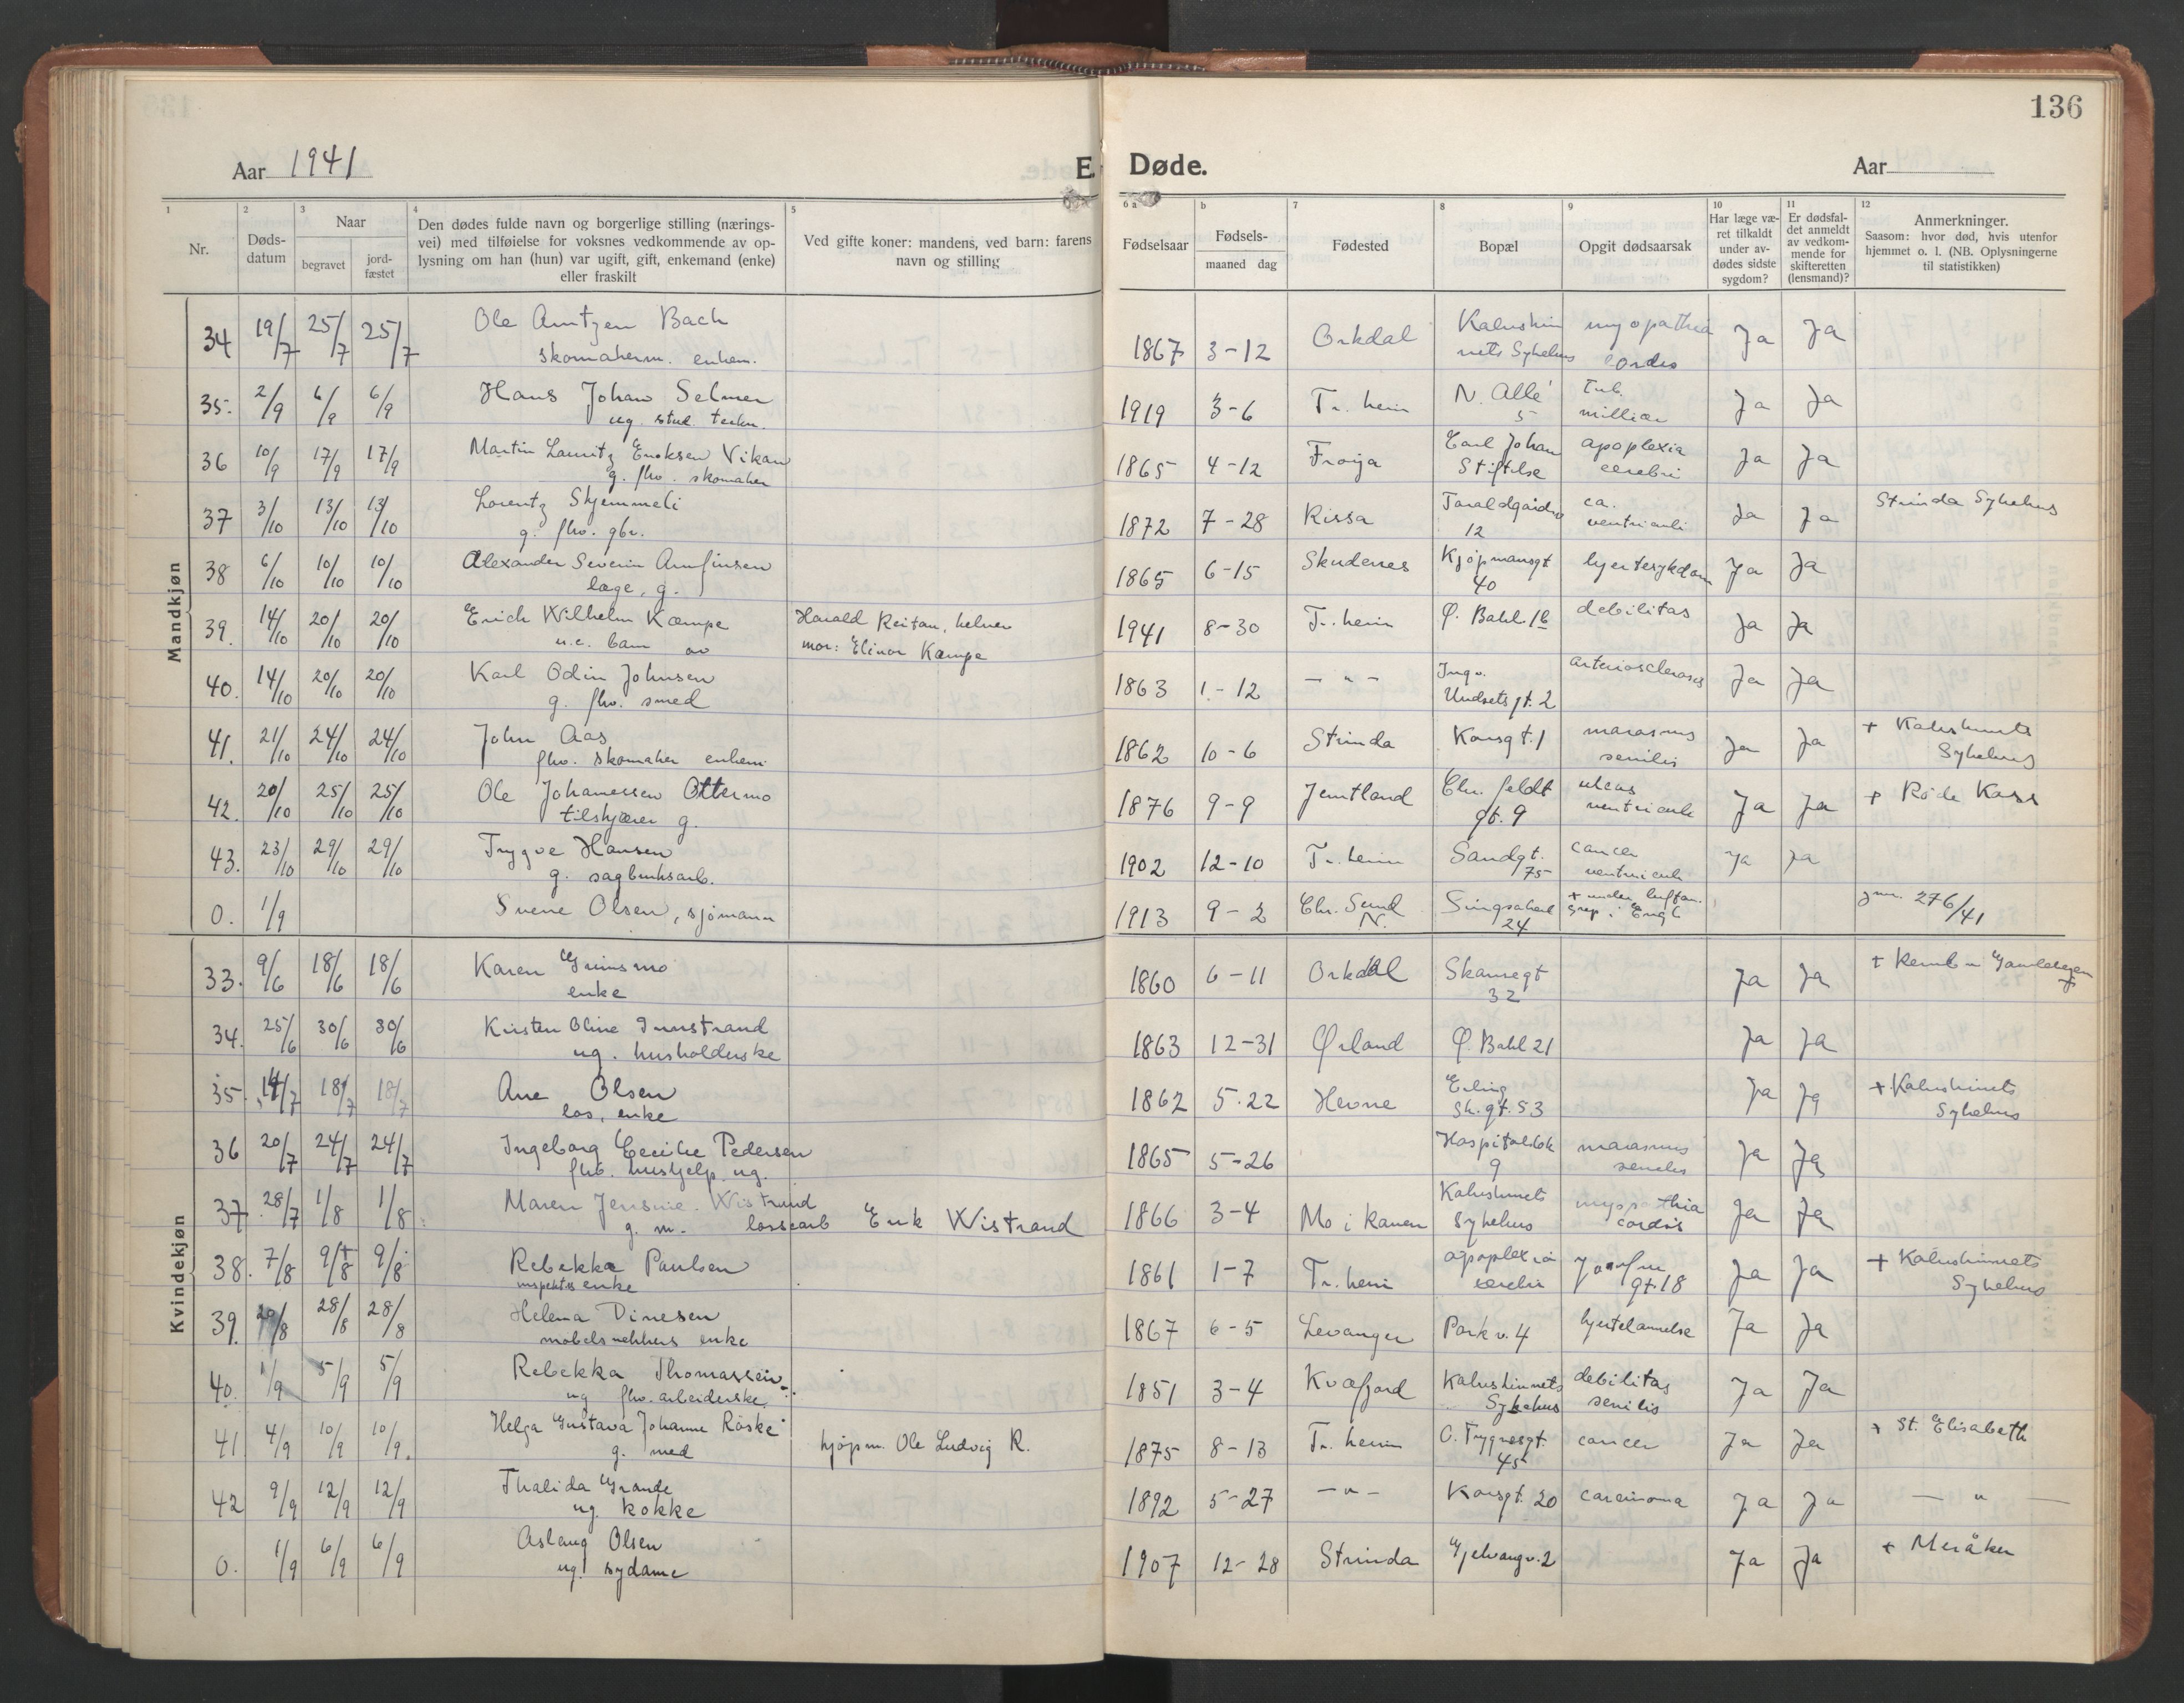 136
Aar 1941
E Døde.
Aar
1 2 3 4 5 6 a b 7 8 9 10 11 12
Nr.
Døds-
datum
Naar
begravet
jord-
fæstet
Den dødes fulde navn og borgerlige stilling (nærings-
vei) med tilføielse for voksnes vedkommende av op-
lysning om han (hun) var ugift, gift, enkemand (enke)
eller fraskilt
Ved gifte koner: mandens, ved barn: farens
navn og stilling
Fødselsaar
Fødsels-
maaned dag
Fødested
Bopæl
Opgit dødsaarsak
Har læge væ-
ret tilkaldt
under av-
dødes sidste
sygdom?
Er dødsfal-
det anmeldt
av vedkom-
mende for
skifteretten
(lensmand)?
Anmerkninger.
Saasom: hvor død, hvis utenfor
hjemmet o. l. (NB. Oplysningerne
til statistikken)
Mandkjøn
34 19/7 25/7 25/7 Ole Arntzen Bach 1867 3-12 Orkdal Kalvskin myopathia Ja Ja
skomakerm. enkem. nets Sykehus cordis
35. 2/9 6/9 6/9 Hans Johan Selmer 1919 3-6 Tr. heim N. Allé Tub. Ja Ja
ug. stud. techn. 5 milliær
36 10/9 17/9 17/9 Martin Lauritz Enoksen Vikan 1865 4-12 Frøya Carl Johan apoplexia Ja Ja
g. fhv. skomaker Stiftelse cerebri
37 3/10 13/10 13/10 Lorentz Skjemmeli 1872 7-28 Rissa Taraldgårdsv ca. Ja Ja Strinda Sykehus
g. fhv. gbr. 12 ventriculi
38 6/10 10/10 10/10 Alexander Severin Arnfinsen 1865 6-15 Skudenes Kjøpmansgt hjertesykdom Ja Ja
læge, g. 40
39. 14/10 20/10 20/10 Erich Wilhelm Kæmpe Harald Reitan, kelner 1941 8-30 Tr. heim Ø. Bakl. 16 debilitas Ja Ja
u.e. barn av mor: Elinor Kæmpe
40. 14/10 20/10 20/10 Karl Odin Johnsen 1863 1-12 - " - Ingv. arteriosclerosis Ja Ja
g. fhv. smed Undsets gt. 2
41. 21/10 24/10 24/10 John Aas 1862 10-6 Strinda Korsgt. 1 marasmus Ja Ja + Kalvskinnets
fhv. skomaker enkem. senilis Sykehus
42. 20/10 25/10 25/10 Ole Johanessen Ottermo 1876 9-9 Jemtland Chr. Jeldt ulcus Ja Ja + Røde Kors
tilskjærer g. gt. 9 ventriculi
43. 23/10 29/10 29/10 Trygve Hansen 1902 12-10 Tr. heim Sandgt. cancer Ja Ja
g. sagbruksarb. 75 ventriculi
0. 1/9 Sverre Olsen, sjømann 1913 9-2 Chr. Sund Singsakerb + under luftan- jnr. 276/41
N. 24 grep i Engl.
Kvindekjøn
33. 9/6 18/6 18/6 Karen Grinsmo 1860 6-11 Orkdal Skansegt Ja Ja
enke 32
34. 25/6 30/6 30/6 Kirsten Oline 1863 12-31 Ørland Ø. Bakl 21 Ja Ja
ug. husholderske
35. 14/7 18/7 18/7 Ane Olsen 1862 5-22 Hevne Erling Ja Ja + Kalvskinnets
los, enke Sk. gt. 53 Sykehus
36 20/7 24/7 24/7 Ingeborg Cecilie Pedersen 1865 5-26 Hospitalsløk marasmus Ja Ja
fhv. hushjelp ug. 9 senilis
37 28/7 1/8 1/8 Maren Jensine Wistrand 1866 3-4 Mo i Ranen Kalvskinnets myopathia Ja Ja
g. m. lossearb Erik Wistrand Sykehus cordis
38. 7/8 9/8 9/8 Rebekka Paulsen 1861 1-7 Tr. heim apoplexia Ja Ja + Kalvskinnets
inspektørs enke cerebri gt. 18 Sykehus
39. 29/8 28/8 28/8 Helena Dinesen 1867 6-5 Levanger Park v. 4 hjertelammelse Ja Ja
møbelsnekkers enke
40. 1/9 5/9 5/9 Rebekka Thomassen 1851 3-4 Kvæfjord Kalvskinnets debilitas Ja Ja
ug fhv. arbeiderske Sykehus senilis
41 4/9 10/9 10/9. Helga Gustava Johanne Röske 1875 8-13 Tr. heim O. Trygvesgt. cancer Ja Ja + St. Elisabeth
g. med kjøpm. Ole Ludvig R. 45
42 9/9 12/9 12/9 Thalida Grande 1892 5-27 - " - Korsgt. 20 carcinoma Ja Ja - " -
ug. kokke
0. 1/9 6/9 6/9 Aslaug Olsen 1907 12-28 Strinda Gjelvangv. 2 Ja Ja + Meråker
ug. sydame